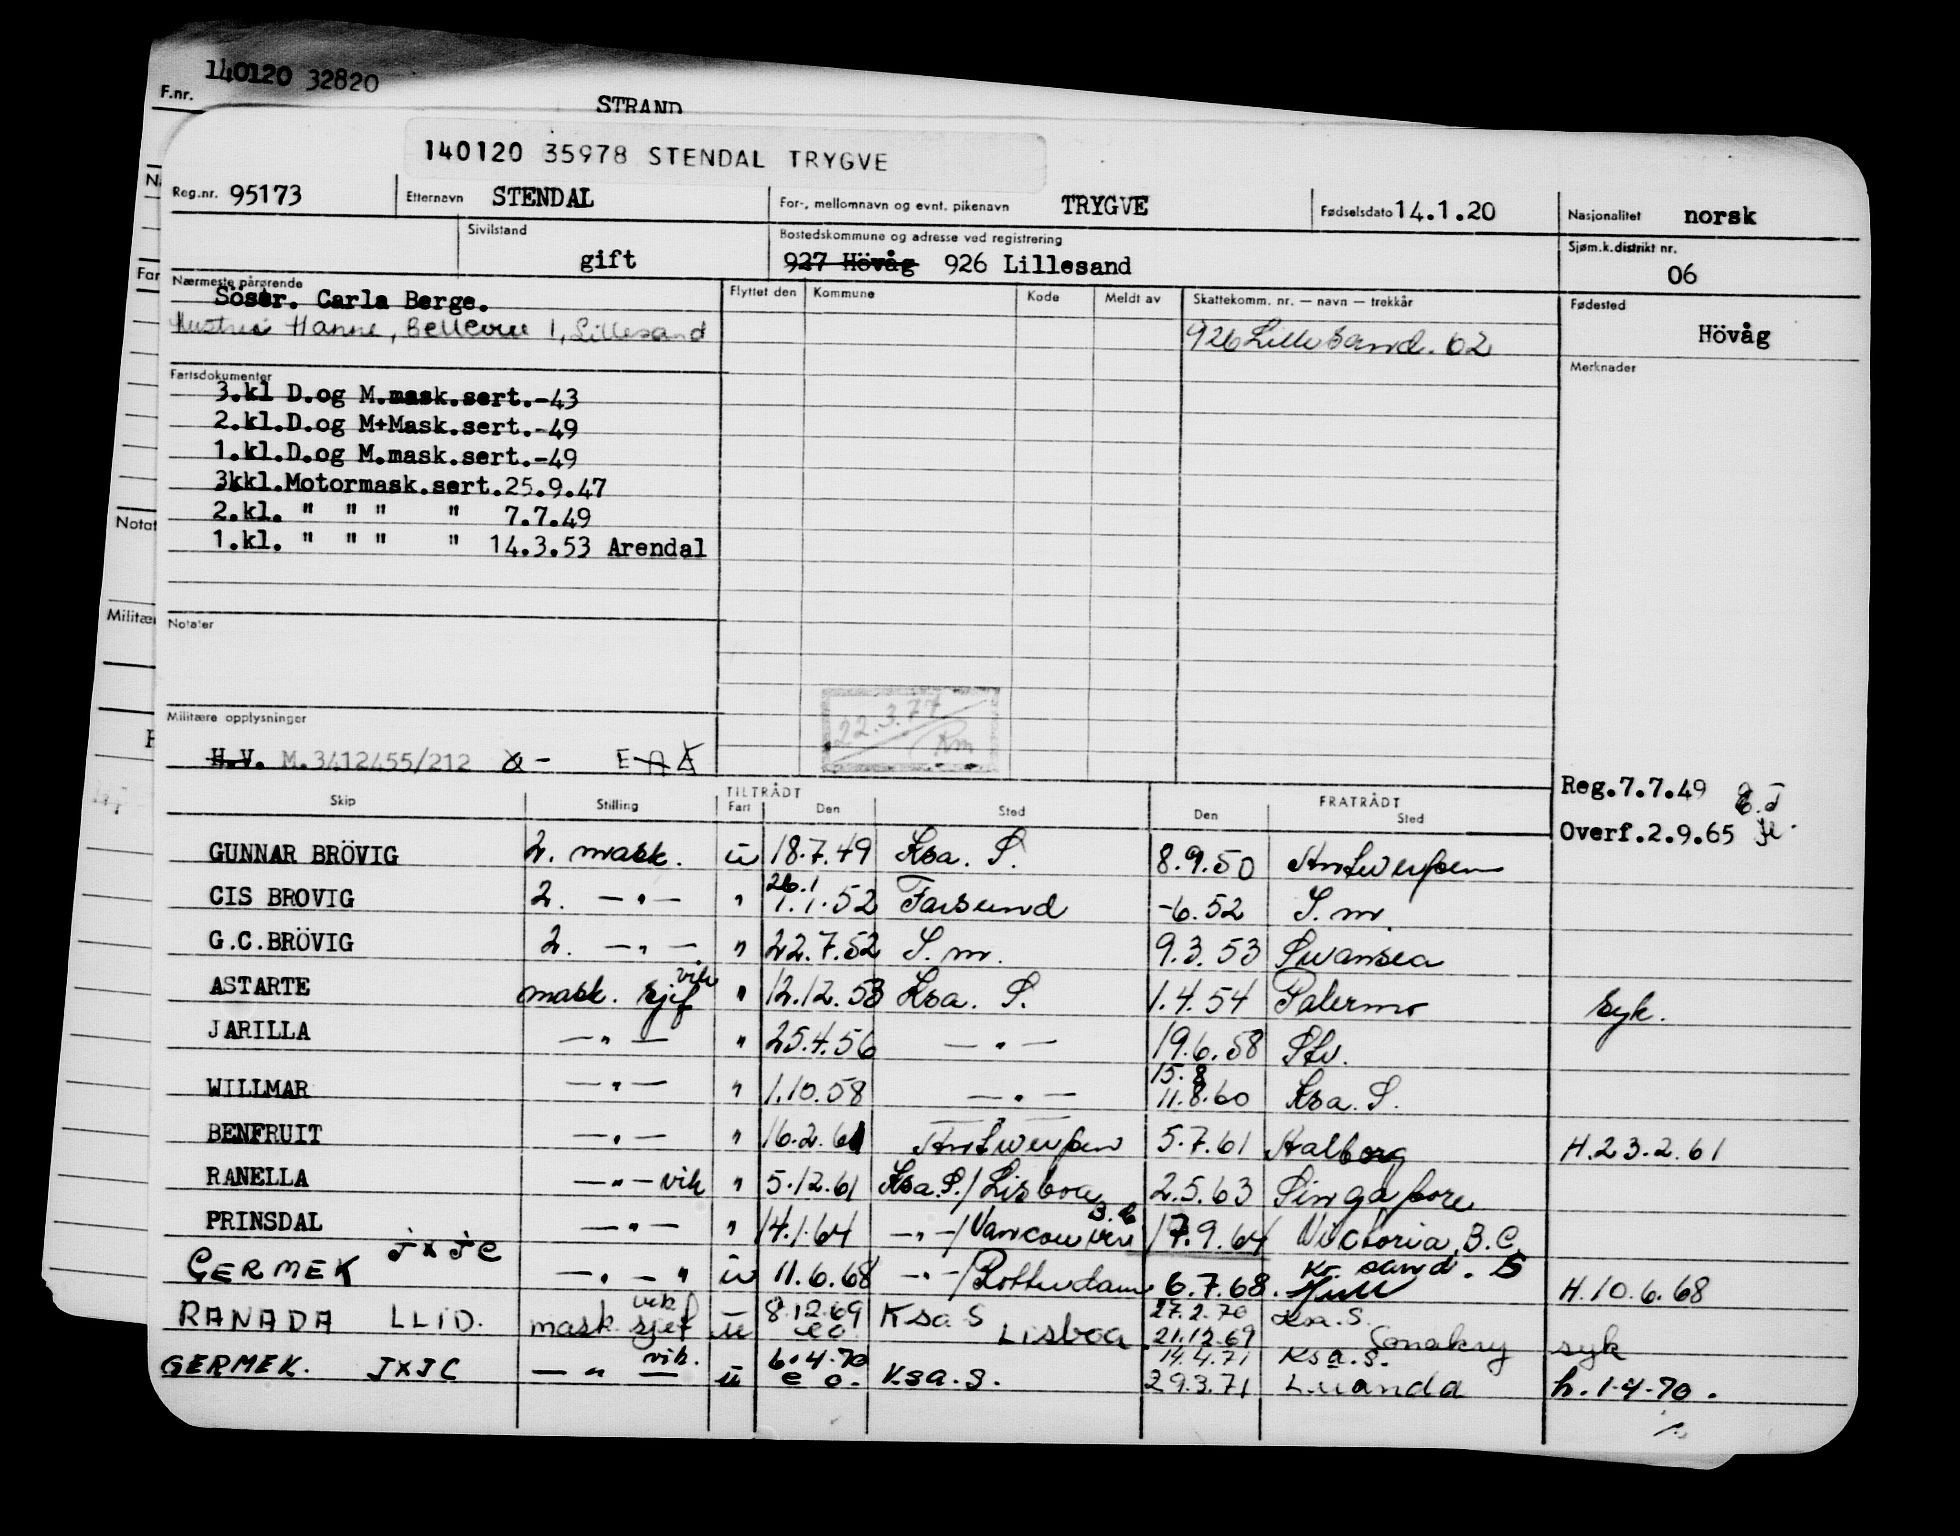 140120 32820
F.nr.
STRAND
140120 35978 STENDAL TRYGVE
Reg.nr. 95173 Etternavn STENDAL For-, mellomnavn og evnt. pikenavn TRYGVE Fødselsdato 14.1.20 Nasjonalitet norsk
Sivilstand gift Bostedskommune og adresse ved registrering 927 Hövåg 926 Lillesand Sjøm.k.distrikt nr. 06
Nærmeste pårørende Flyttet den Kommune Kode Meldt av Skattekomm. nr. — navn — trekkår Fødested
Söstr. Carla Berge.
Hustru Hanne, Bellevue 1, Lillesand 926 Lillesand. 62 Hövåg
Merknader
Fartsdokumenter
3.kl D.og M.mask.sert.-43
2.kl.D.og M+Mask.sert.-49
1.kl.D.og M.mask.sert.-49
3kkl.Motormask.sert.25.9.47
2.kl. " " " " 7.7.49
1.kl. " " " " 14.3.53 Arendal
Notat
Militær
Notater
22.3.77
Rm
Militære opplysninger
H.V. M.3412455/212 E A
Reg.7.7.49
Overf.2.9.65
Skip Stilling TILTRÅDT Fart Den Sted FRATRÅDT Den Sted
GUNNAR BRÖVIG 2. mask. u 18.7.49 Ksa. S. 8.9.50 Antwerpen
CIS BROVIG 2. — " — " 26.1 1.1.52 Farsund -6.52 S.m.
G.C.BRÖVIG 2. — " — " 22.7.52 S.m. 9.3.53 Swansea
ASTARTE mask. sjef vik " 12.12.53 Ksa. S. 1.4.54 Palermo syk.
JARILLA — " — " 25.4.56 — " — 19.6.58 Stv.
WILLMAR — " — " 1.10.58 — " — 15.8 11.8.60 Ksa. S.
BENFRUIT — " — " 16.2.61 Antwerpen 5.7.61 Aalborg H.23.2.61
RANELLA — " — vik " 5.12.61 Ksa.S./Lisboa 2.5.63 Singapore
PRINSDAL — " — " 14.1.64 — " —/Vancouver B.C 17.9.64 Victoria B.C.
GERMEK JXJC — " — " u 11.6.68 — " —/Rotterdam 6.7.68. Kr. sand. S Hull H.10.6.68
RANADA LLID. mask. sjef vik u 8.12.69 eo. Ksa S Lisboa 27.2.70 Ksa.S. 21.12.69 Conakry syk
GERMEK. JXJC — " — vik. u 6.4.70 e o. Ksa.S. 14.4.71 Ksa.S. 29.3.71 Luanda h. 1-4-70.